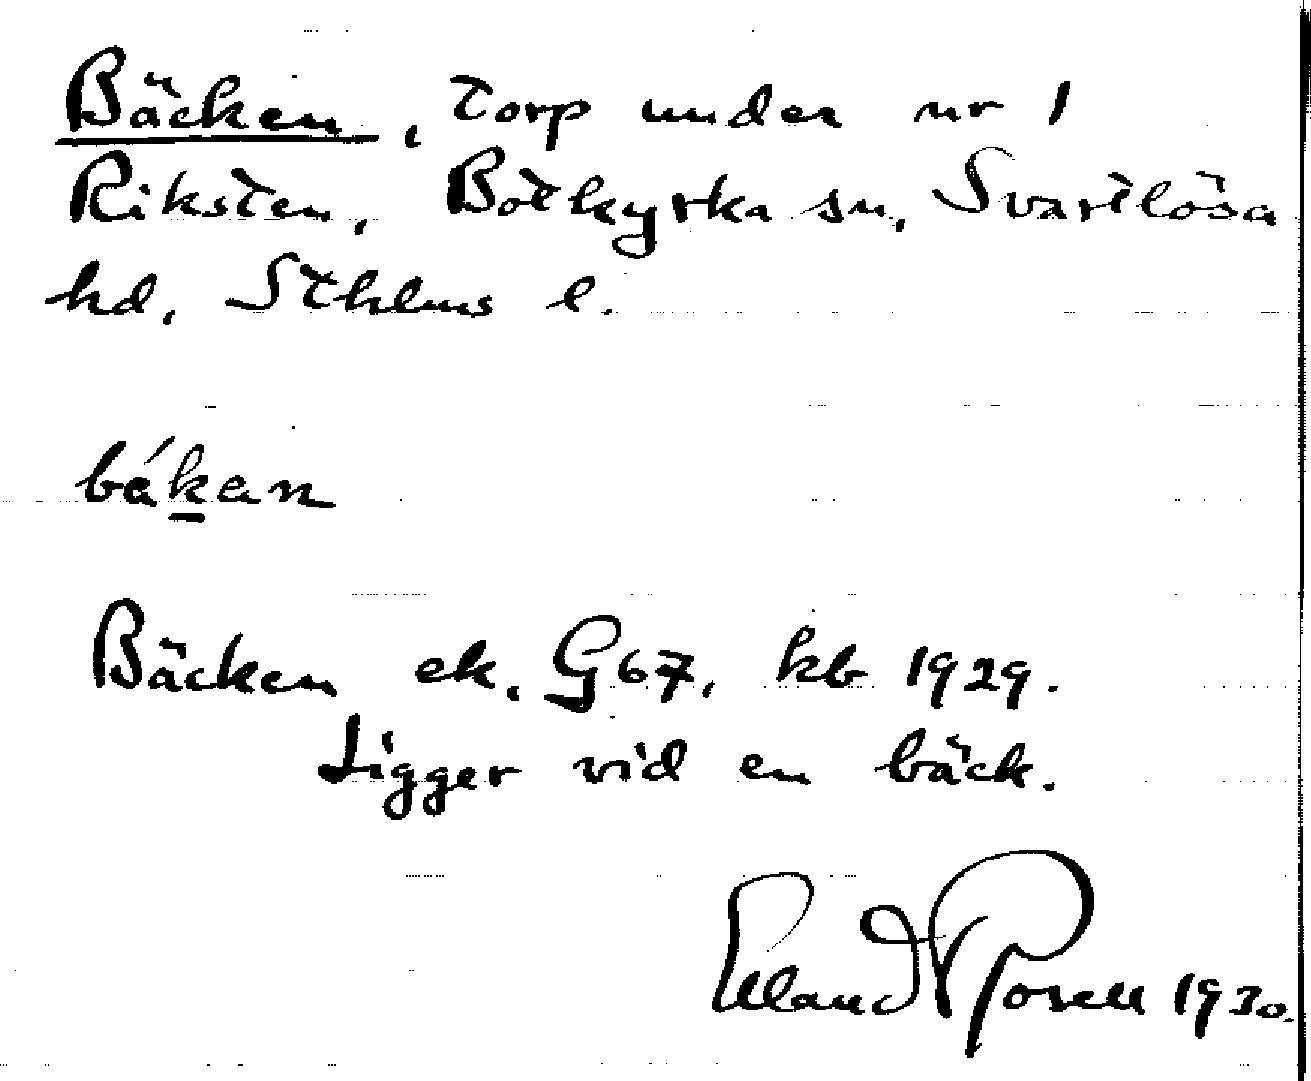 Bäcken, torp under nr 1
Riksten, Botkyrka sn, Svartlösa
hd, Sthlms l.
bákan
Bäcken ek. G67, kb 1929.
Ligger vid en bäck.
Erland Rosell 1930.